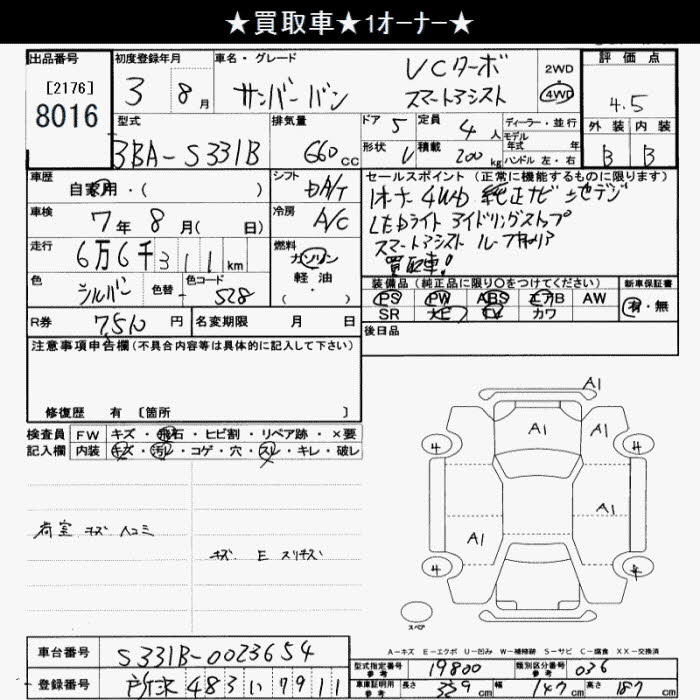 ★買取車★1オーナー★
出品番号 初度登録年月 車名・グレード 評価点
[2176]
8016
3 8月 サンバーバン VCターボ スマートアシスト 2WD 4WD 4.5
型式 排気量 ドア 5 定員 4人 ディーラー・並行 外装 内装
モデル年式 年式
3BA-S331B 660cc 形状 V 積載 200kg ハンドル 左・右 B B
車歴 自家用・( ) シフト セールスポイント(正常に機能するものに限ります)
1オーナー 4WD 純正ナビ 地デジ
車検 7年8月( 日) 冷房 A/C LEDライト アイドリングストップ
走行 6万6千311km 燃料 ガソリン スマートアシスト ルーフキャリア
軽油・ 買取車!
( )
色 シルバー 色替 - 色コード S28
装備品(純正品に限り○をつけてください) 新車保証書
PS PW ABS エアB AW 有・無
SR ナビ TV カワ
R券 7510円 名変期限 月 日 後日品
注意事項申告欄(不具合内容等は具体的に記入して下さい)
修復歴 有 [箇所 ]
検査員 FW キズ・飛石・ヒビ割・リペア跡・×要
記入欄 内装 キズ・汚レ・コゲ・穴・スレ・キレ・破レ
荷室 キズ ヘコミ
キズ E スリキズ
A1
A1 A1
4 4
A1
A1
4 4
スペア
A-キズ E-エクボ U-凹み W-補修跡 S-サビ C-腐食 XX-交換済
車台番号 S331B-0023654
型式指定番号 参考 19800 類別区分番号 参考 036
登録番号 所沢 483 い 7911
車庫証明用 参考 長さ 339cm 幅 147cm 高さ 187cm